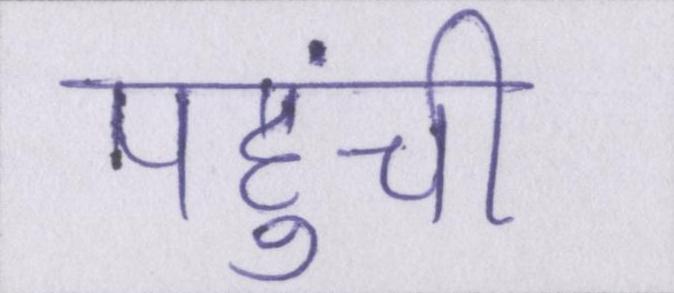 पहुंची